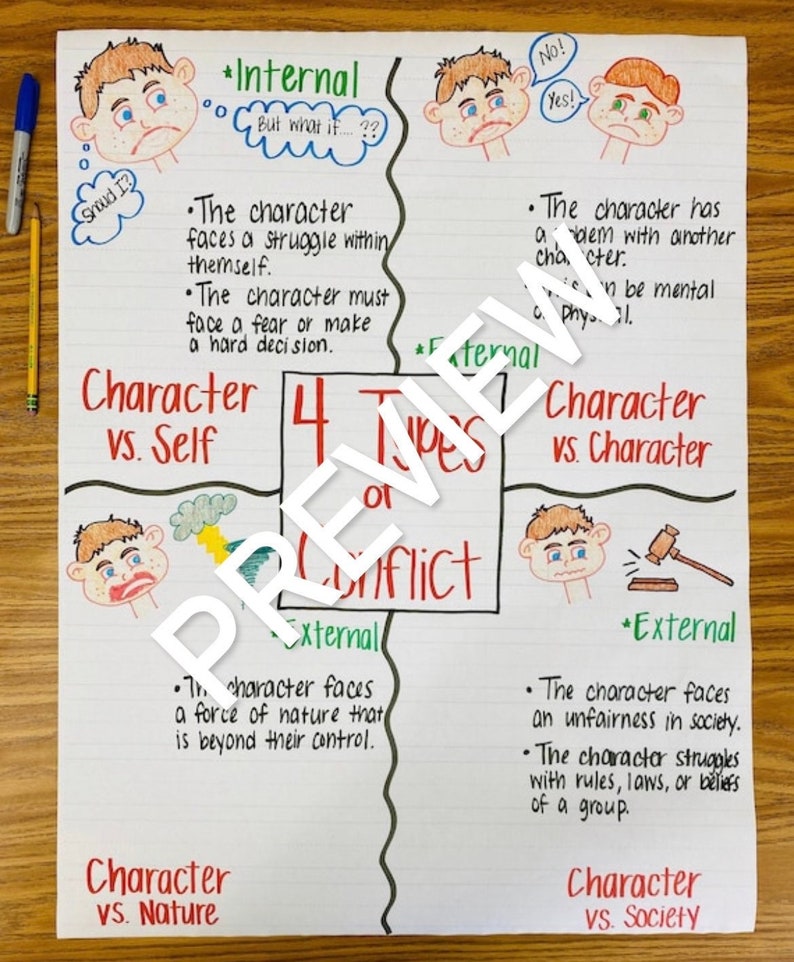 *Internal
But what if.... ??
Shoud I?
• The character
faces a struggle within
themself.
• The character must
face a fear or make
a hard decision.
Character
vs. Self
No!
Yes!
• The character has
a problem with another
character.
can be mental
or physical.
*External
Character
vs. Character
4 Types
of
Conflict
PREVIEW
*External
• The character faces
a force of nature that
is beyond their control.
Character
vs. Nature
*External
• The character faces
an unfairness in society.
• The character struggles
with rules, laws, or beliefs
of a group.
Character
vs. Society